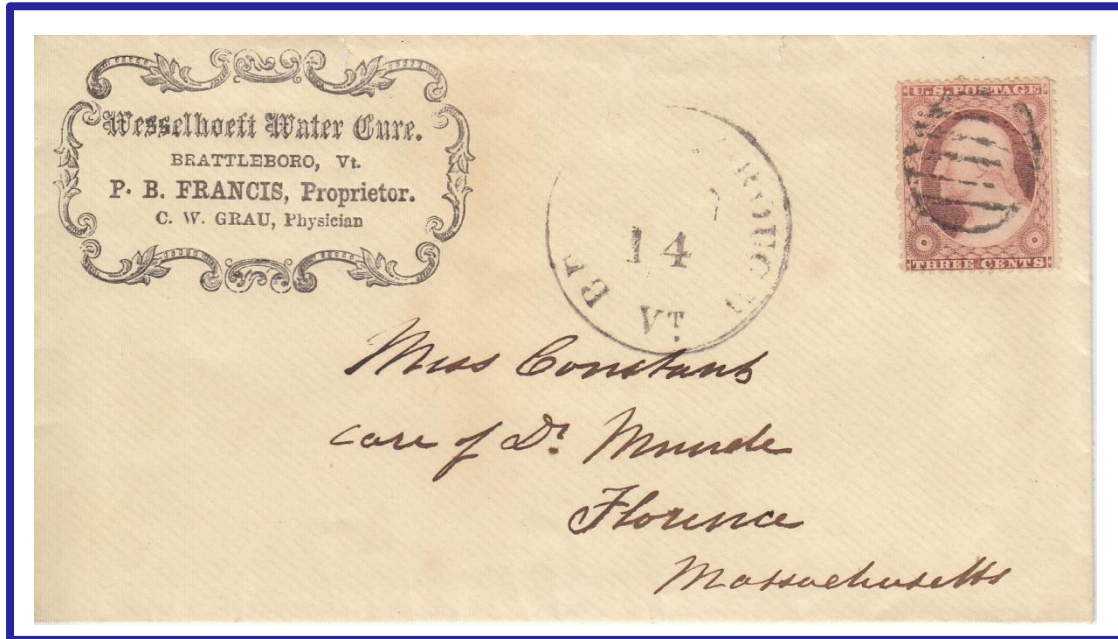 Wesselhoeft Water Cure.
BRATTLEBORO, Vt.
P. B. FRANCIS, Proprietor.
C. W. GRAU, Physician
14
VT.
U.S. POSTAGE
THREE CENTS
Miss Constant
care of Dr. Munde
Florence
Massachusetts